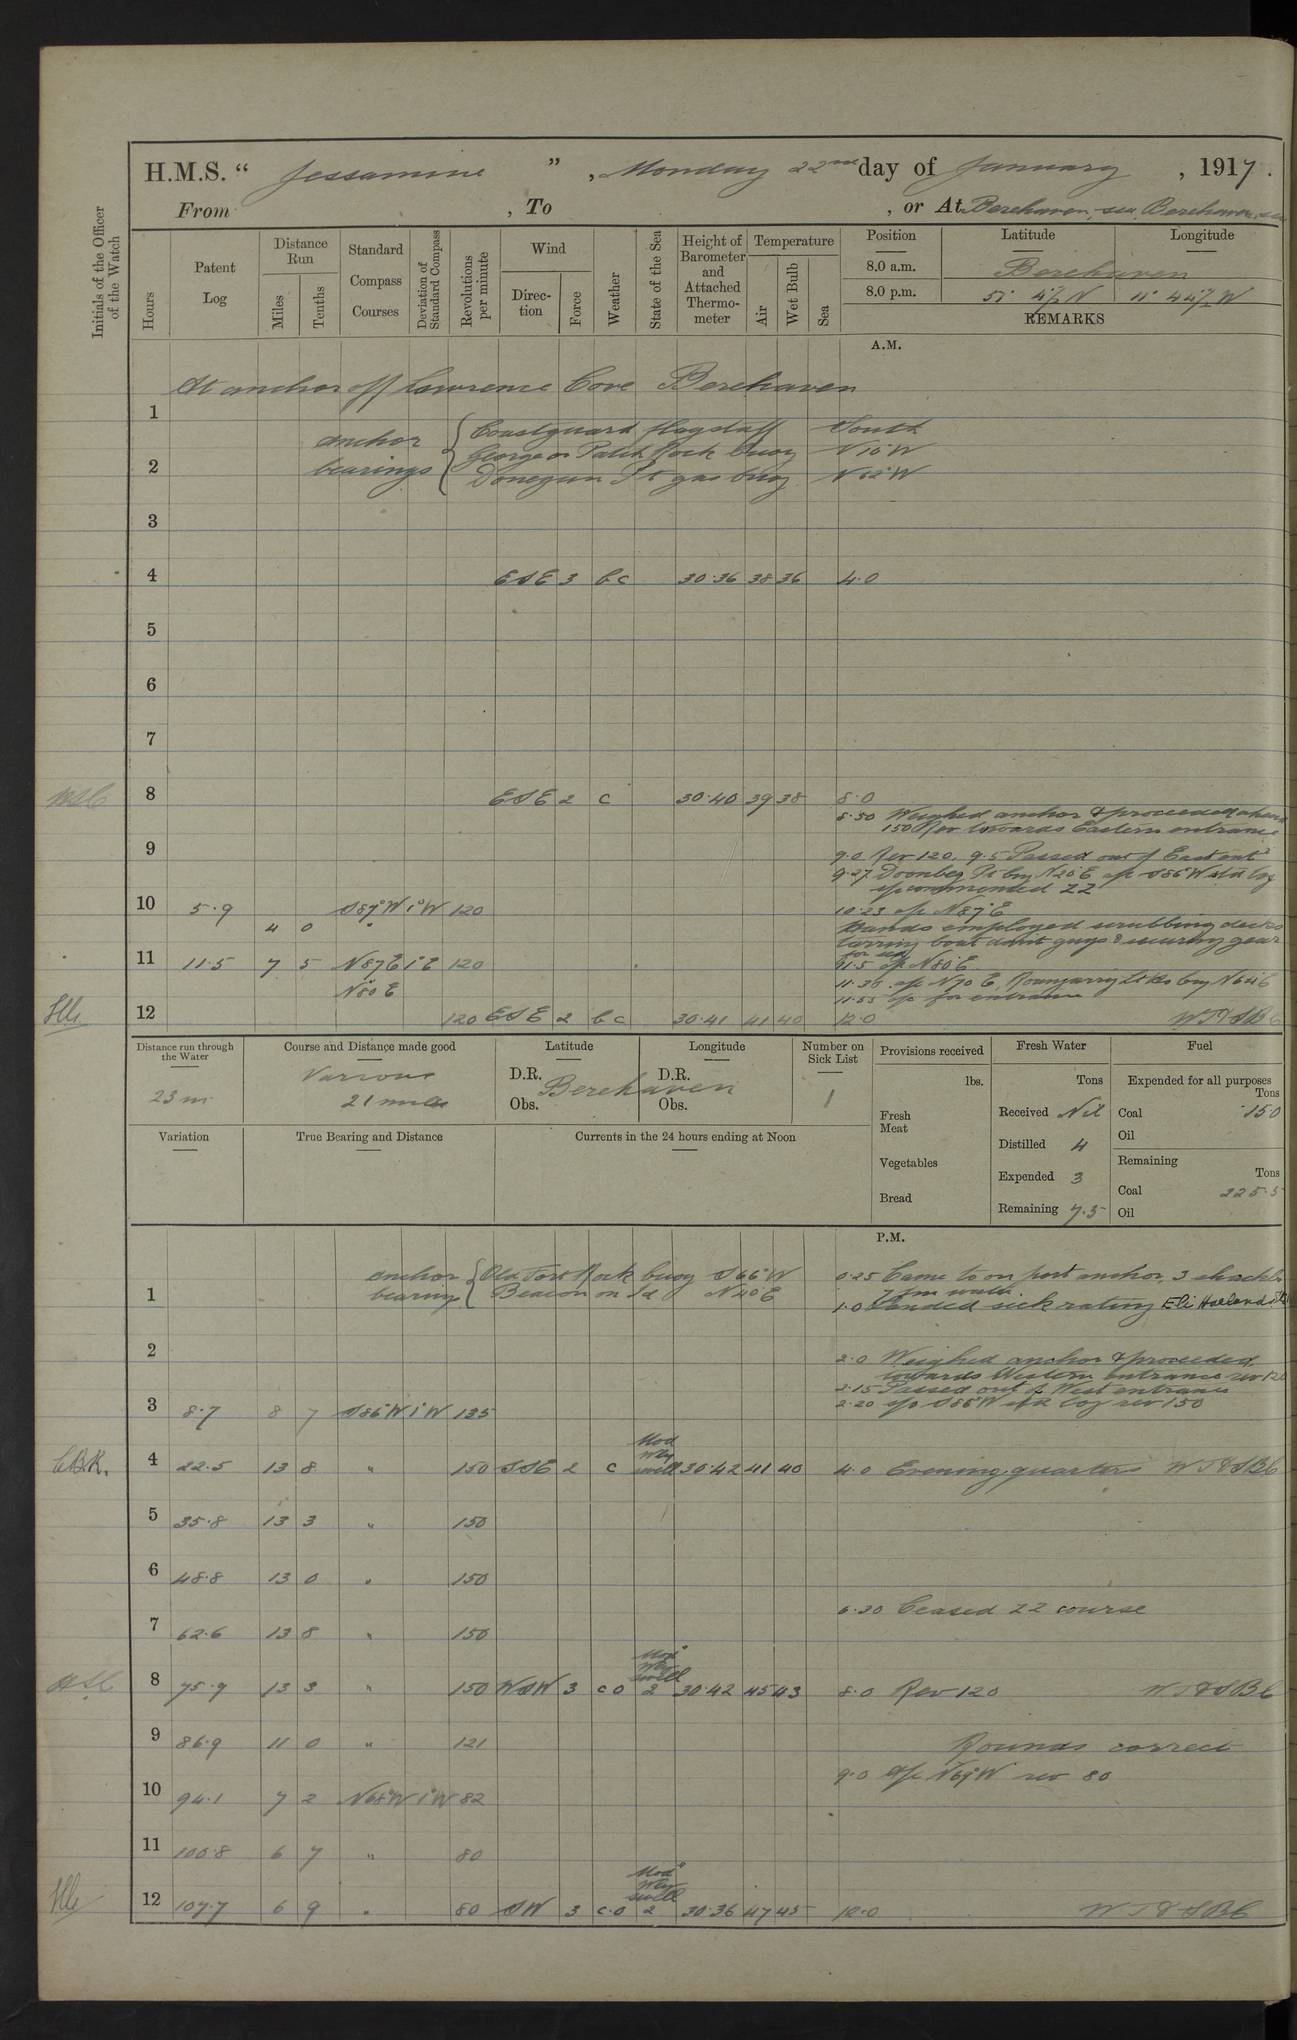 H.M.S. " Jessamine ", Monday 22nd day of January, 1917.
From , To , or At Berehaven, sea, Berehaven, sea
Initials of the Officer of the Watch
Hours
Patent Log
Distance Run
Miles
Tenths
Standard Compass Courses
Deviation of Standard Compass
Revolutions per minute
Wind
Direction
Force
Weather
State of the Sea
Height of Barometer and Attached Thermometer
Temperature
Air
Wet Bulb
Sea
Position Latitude Longitude
8.0 a.m. Berehaven
8.0 p.m.
REMARKS
A.M.
At anchor off Lawrence Cove Berehaven
1
anchor bearings { Coastguard flagstaff South
George or Patch Rock buoy N 10° W
2 Donegan Pt gas buoy N 62° W
3
4 ESE 3 bc 30.36 38 36 4.0
5
6
7
8 ESE 2 c 30.40 39 38 8.0
8.50 Weighed anchor & proceeded ahead
150 Rev towards Eastern entrance
9
9.0 Rev 120. 9.5 Passed out of East entce
9.27 Doonbeg Pt buoy N20°E a/c S86°W std log
commenced ZZ
10 5.9 4 0 S87°W 1°W 120 10.23 a/c N87°E
Hands employed scrubbing decks
tarring boat davit guys & securing gear
for sea
11 11.5 7 5 N87E 1°E 120 11.5 a/c N80°E
N80E 11.30 a/c N70E,
11.55 a/c for entrance
12 120 ESE 2 bc 30.41 41 40 12.0 WT&SBC
Distance run through the Water
23 m
Course and Distance made good
Various
21 miles
Latitude
D.R.
Obs.
Longitude
D.R.
Obs.
Berehaven
Number on Sick List
1
Provisions received
lbs.
Fresh Meat
Vegetables
Bread
Fresh Water
Tons
Received Nil
Distilled 4
Expended 3
Remaining 7.5
Fuel
Expended for all purposes
Tons
Coal 15.0
Oil
Remaining
Tons
Coal 225.5
Oil
Variation
True Bearing and Distance
Currents in the 24 hours ending at Noon
P.M.
anchor bearings { Old Fort Rock buoy S66°W
Beacon on Id N40°E
0.25 Came to on port anchor, 3 shackles
7 fms water.
1 1.0 Landed sick rating Eli Holland
2 2.0 Weighed anchor & proceeded
towards Western entrance rev 120
2.15 Passed out of West entrance
3 8.7 8 7 S86°W 1°W 135 2.20 a/c S86°W std log rev 150
4 22.5 13 8 " 150 SSE 2 c Mod Wly swell 30.42 41 40 4.0 Evening quarters WT&SBC
5 35.8 13 3 " 150
6 48.8 13 0 " 150
6.30 Ceased ZZ course
7 62.6 13 8 " 150
8 75.9 13 3 " 150 WSW 3 co Mod Wly swell 2 30.42 45 43 8.0 Rev 120 WT&SBC
9 86.9 11 0 " 121 Rounds correct
9.0 a/c N69°W rev 80
10 94.1 7 2 N68°W 1°W 82
11 100.8 6 7 " 80
12 107.7 6 9 " 80 SW 3 c.o Mod Wly swell 2 30.36 47 45 12.0 WT&SBC